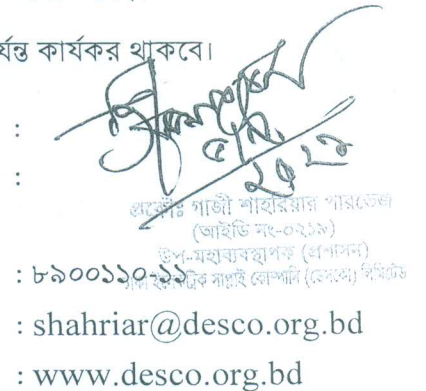 র্যন্ত কার্যকর থাকবে।
:
:
প্রকৌঃ গাজী শাহরিয়ার পারভেজ
(আইডি নং-০২১৯)
উপ-মহাব্যবস্থাপক (প্রশাসন)
ঢাকা ইলেকট্রিক সাপ্লাই কোম্পানি (ডেসকো) লিমিটেড
: ৮৯০০১১০-১১
: shahriar@desco.org.bd
: www.desco.org.bd